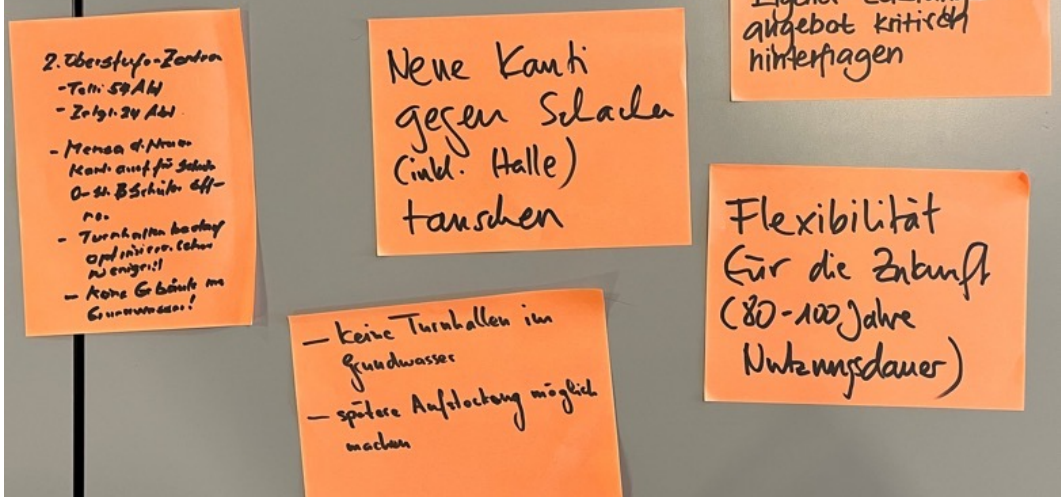 2. Oberstufe-Zentren
- Telli 54 Abt
- Zelgli 24 Abt.
- Mensa d. Neuen
Kanti auch für
O-st. B Schüler öff-
nen.
- Turnhallenbedarf
optimieren
weniger!!
- Keine Gebäude im
Grundwasser!
Neue Kanti
gegen Schachen
(inkl. Halle)
tauschen
angebot kritisch
hinterfragen
Flexibilität
für die Zukunft
(80-100 Jahre
Nutzungsdauer)
- keine Turnhallen im
Grundwasser
- spätere Aufstockung möglich
machen